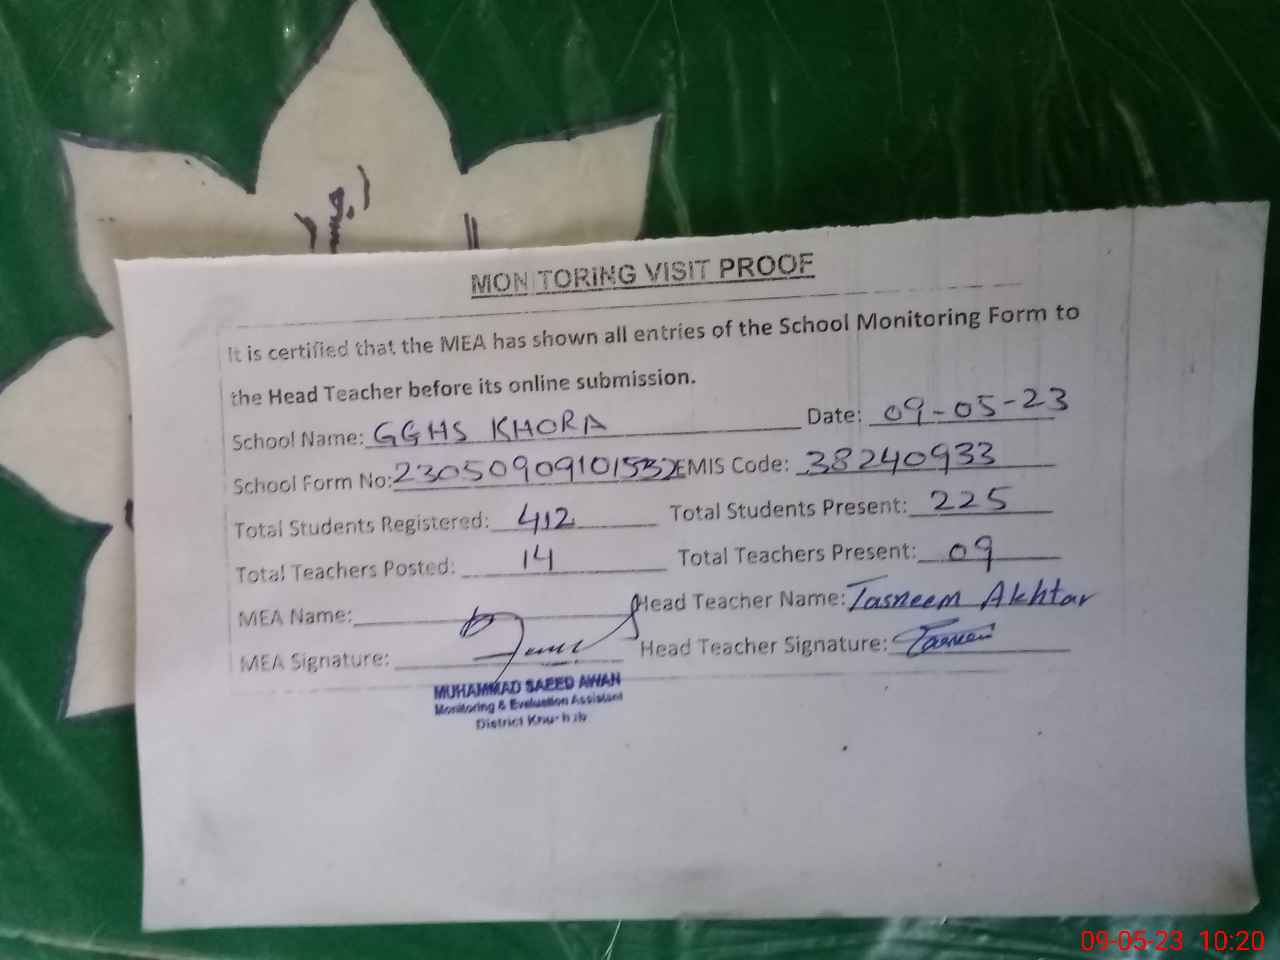 MONITORING VISIT PROOF
It is certified that the MEA has shown all entries of the School Monitoring Form to
the Head Teacher before its online submission.
School Name: GGHS KHORA Date: 09-05-23
School Form No: 23050909101532 EMIS Code: 38240933
Total Students Registered: 412 Total Students Present: 225
Total Teachers Posted: 14 Total Teachers Present: 09
MEA Name: Head Teacher Name: Tasneem Akhtar
MEA Signature: Head Teacher Signature: Tasneem
MUHAMMAD SAEED AWAN
Monitoring & Evaluation Assistant
District Khushab
09-05-23 10:20